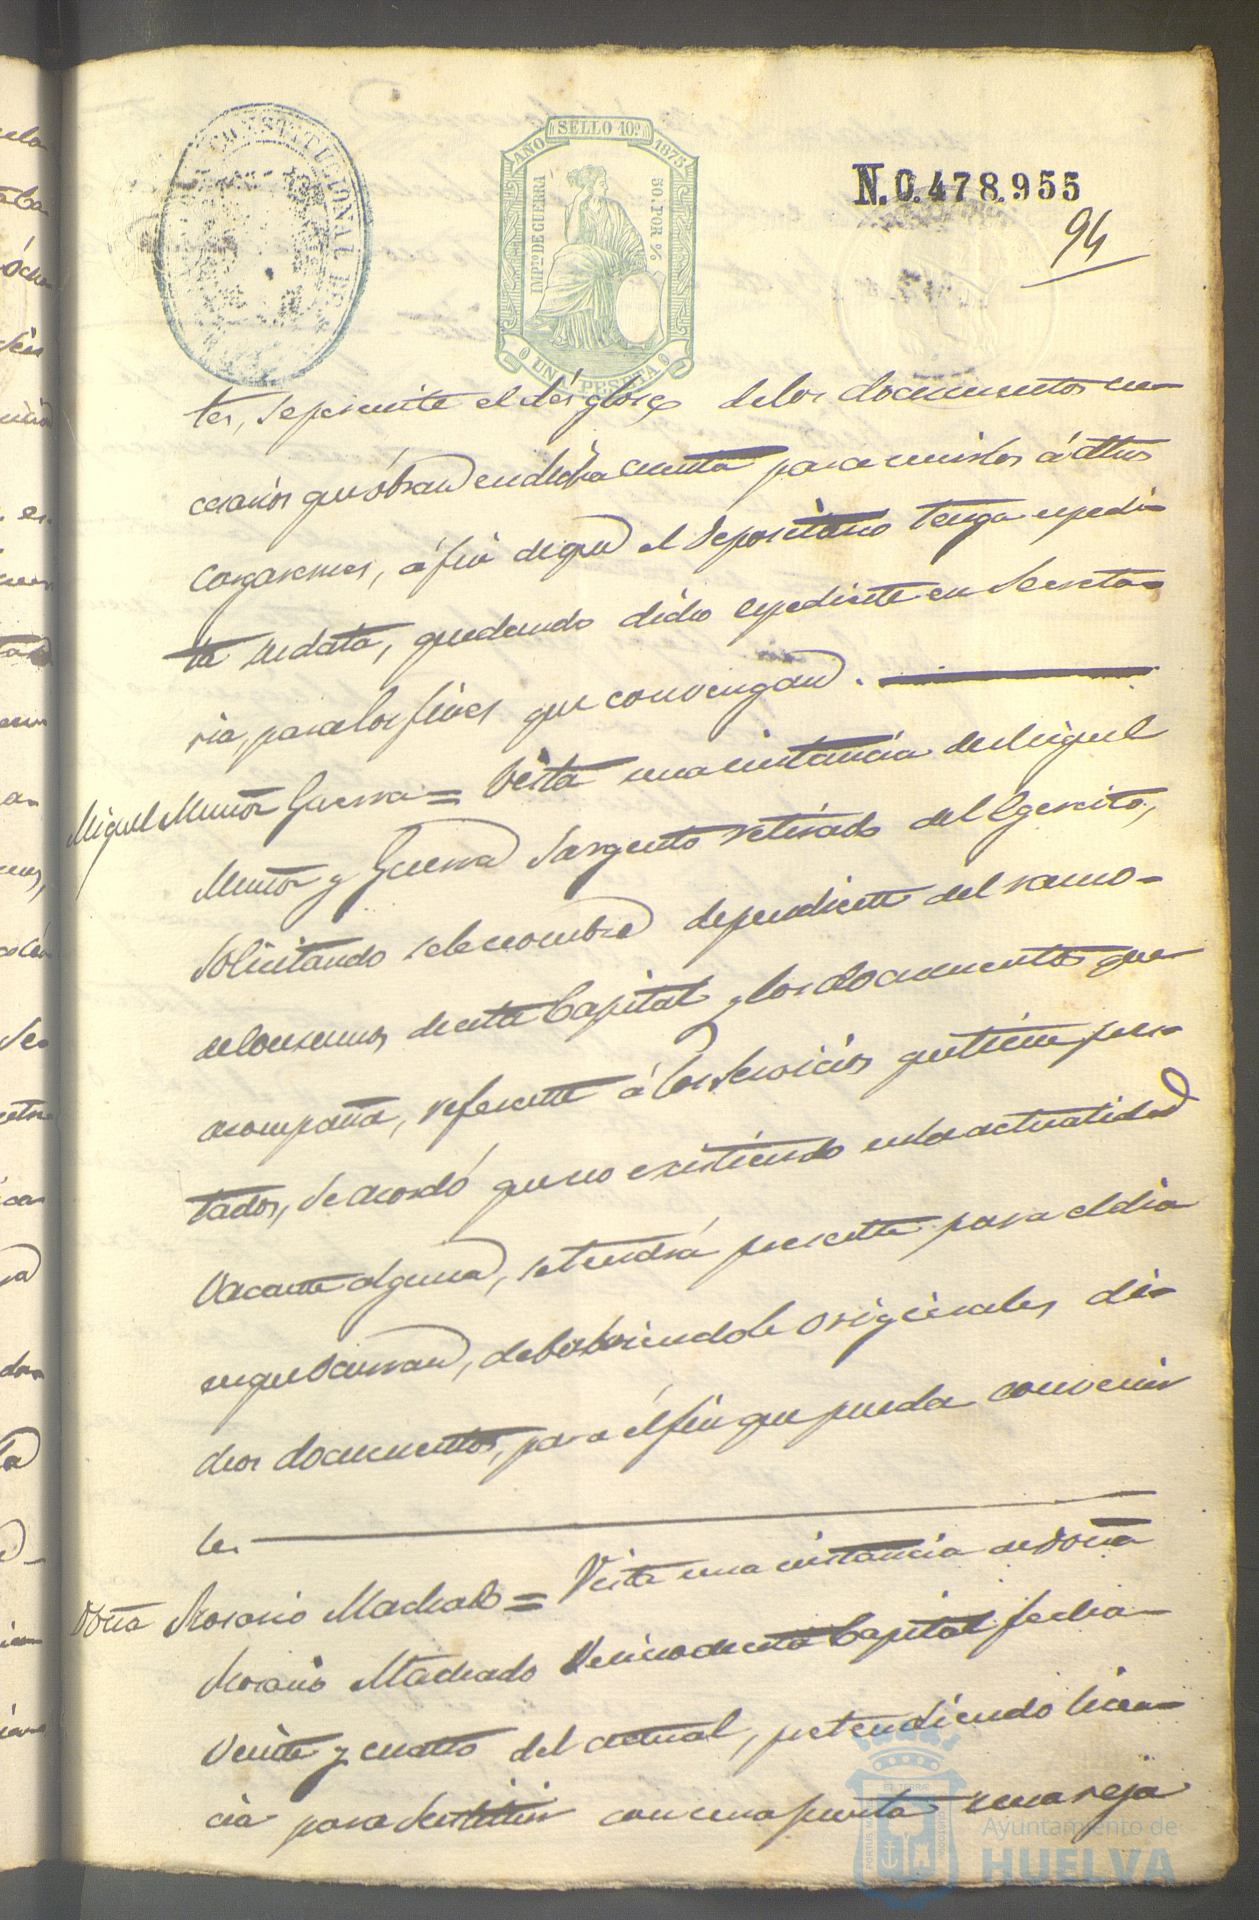 CONSTITUCIONAL
AÑO SELLO 10º 1875
IMPTO DE GUERRA
50 POR %
UNA PESETA
N.0.478.955
94
tes, se permite el desglose de los documentos ne-
cesarios que obran en dicha cuenta para unirlos á
á fin de que el Depositario tenga espedi-
ta su data, quedando dicho espediente en Secreta-
ria, para los fines que convengan.
Miguel Muñoz Guerra = Vista una instancia de Miguel
Muñoz y Guerra Sargento retirado del Egercito,
solicitando se le nombre dependiente del ramo
de Consumos de esta Capital y los documentos que
acompaña, referente á los servicios que tiene pres-
tados, se acordó que no existiendo en la actualidad
vacante alguna, se tendrá presente para el dia
en que ocurran, debolviendole originales di-
chos documentos, para él fin que pueda convenir
le.
Doña Rosario Machado = Vista una instancia de Doña
Rosario Machado vecina de esta Capital fecha
veinte y cuatro del actual, pretendiendo licen-
cia para sustituir con una puerta una reja
Ayuntamiento de
HUELVA